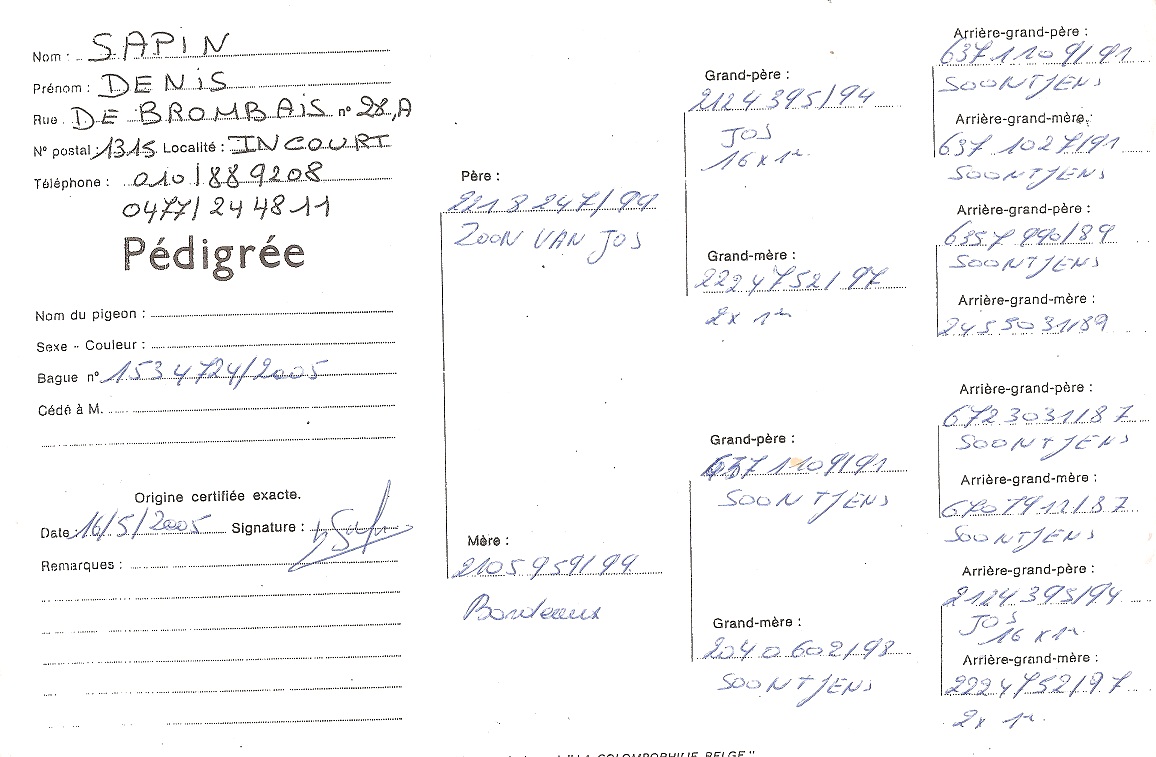 Nom : SAPIN
Prénom : DENIS
Rue . DE BROMBAIS n° 28,A
N° postal : 1315 Localité : INCOURT
Téléphone : 010/889208
0477/244811
Pédigrée
Nom du pigeon :
Sexe - Couleur :
Bague n° 1534724/2005
Cédé à M.
Origine certifiée exacte.
Date 16/5/2005 Signature :
Remarques :
Père :
2218247/99
ZOON VAN JOS
Mère :
2105959/99
Bordeaux
Grand-père :
2124395/94
JOS
16 x 1
Grand-mère :
2224752/97
2x 1
Grand-père :
6371109/91
SOONTJENS
Grand-mère :
2040602/98
SOONTJENS
Arrière-grand-père :
6371109/91
SOONTJENS
Arrière-grand-mère :
6371027/91
SOONTJENS
Arrière-grand-père :
6357990/89
SOONTJENS
Arrière-grand-mère :
2455031/89
Arrière-grand-père :
6723031/87
SOONTJENS
Arrière-grand-mère :
6707912/87
SOONTJENS
Arrière-grand-père :
2124395/94
JOS
16 x 1
Arrière-grand-mère :
2224752/97
2x 1
"LA COLOMBOPHILIE BELGE"